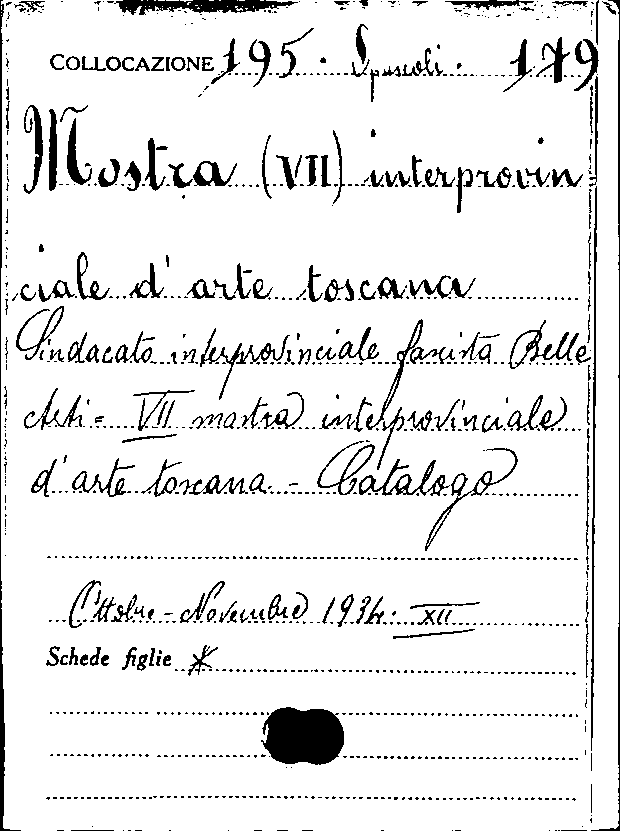 COLLOCAZIONE 195. Opuscoli. 179
Mostra (VII) interprovin=
ciale d'arte toscana
Sindacato interprovinciale fascista Belle
Arti = VII mostra interprovinciale
d'arte toscana - Catalogo
Ottobre - Novembre 1934. XII
Schede figlie *